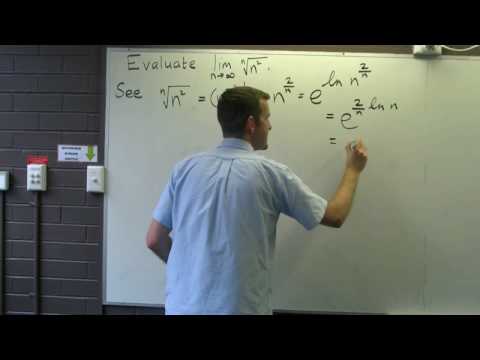 Evaluate lim n→∞ ⁿ√n².
See ⁿ√n² = ( n^(2/n) = e^(ln n^(2/n))
= e^((2/n) ln n)
=